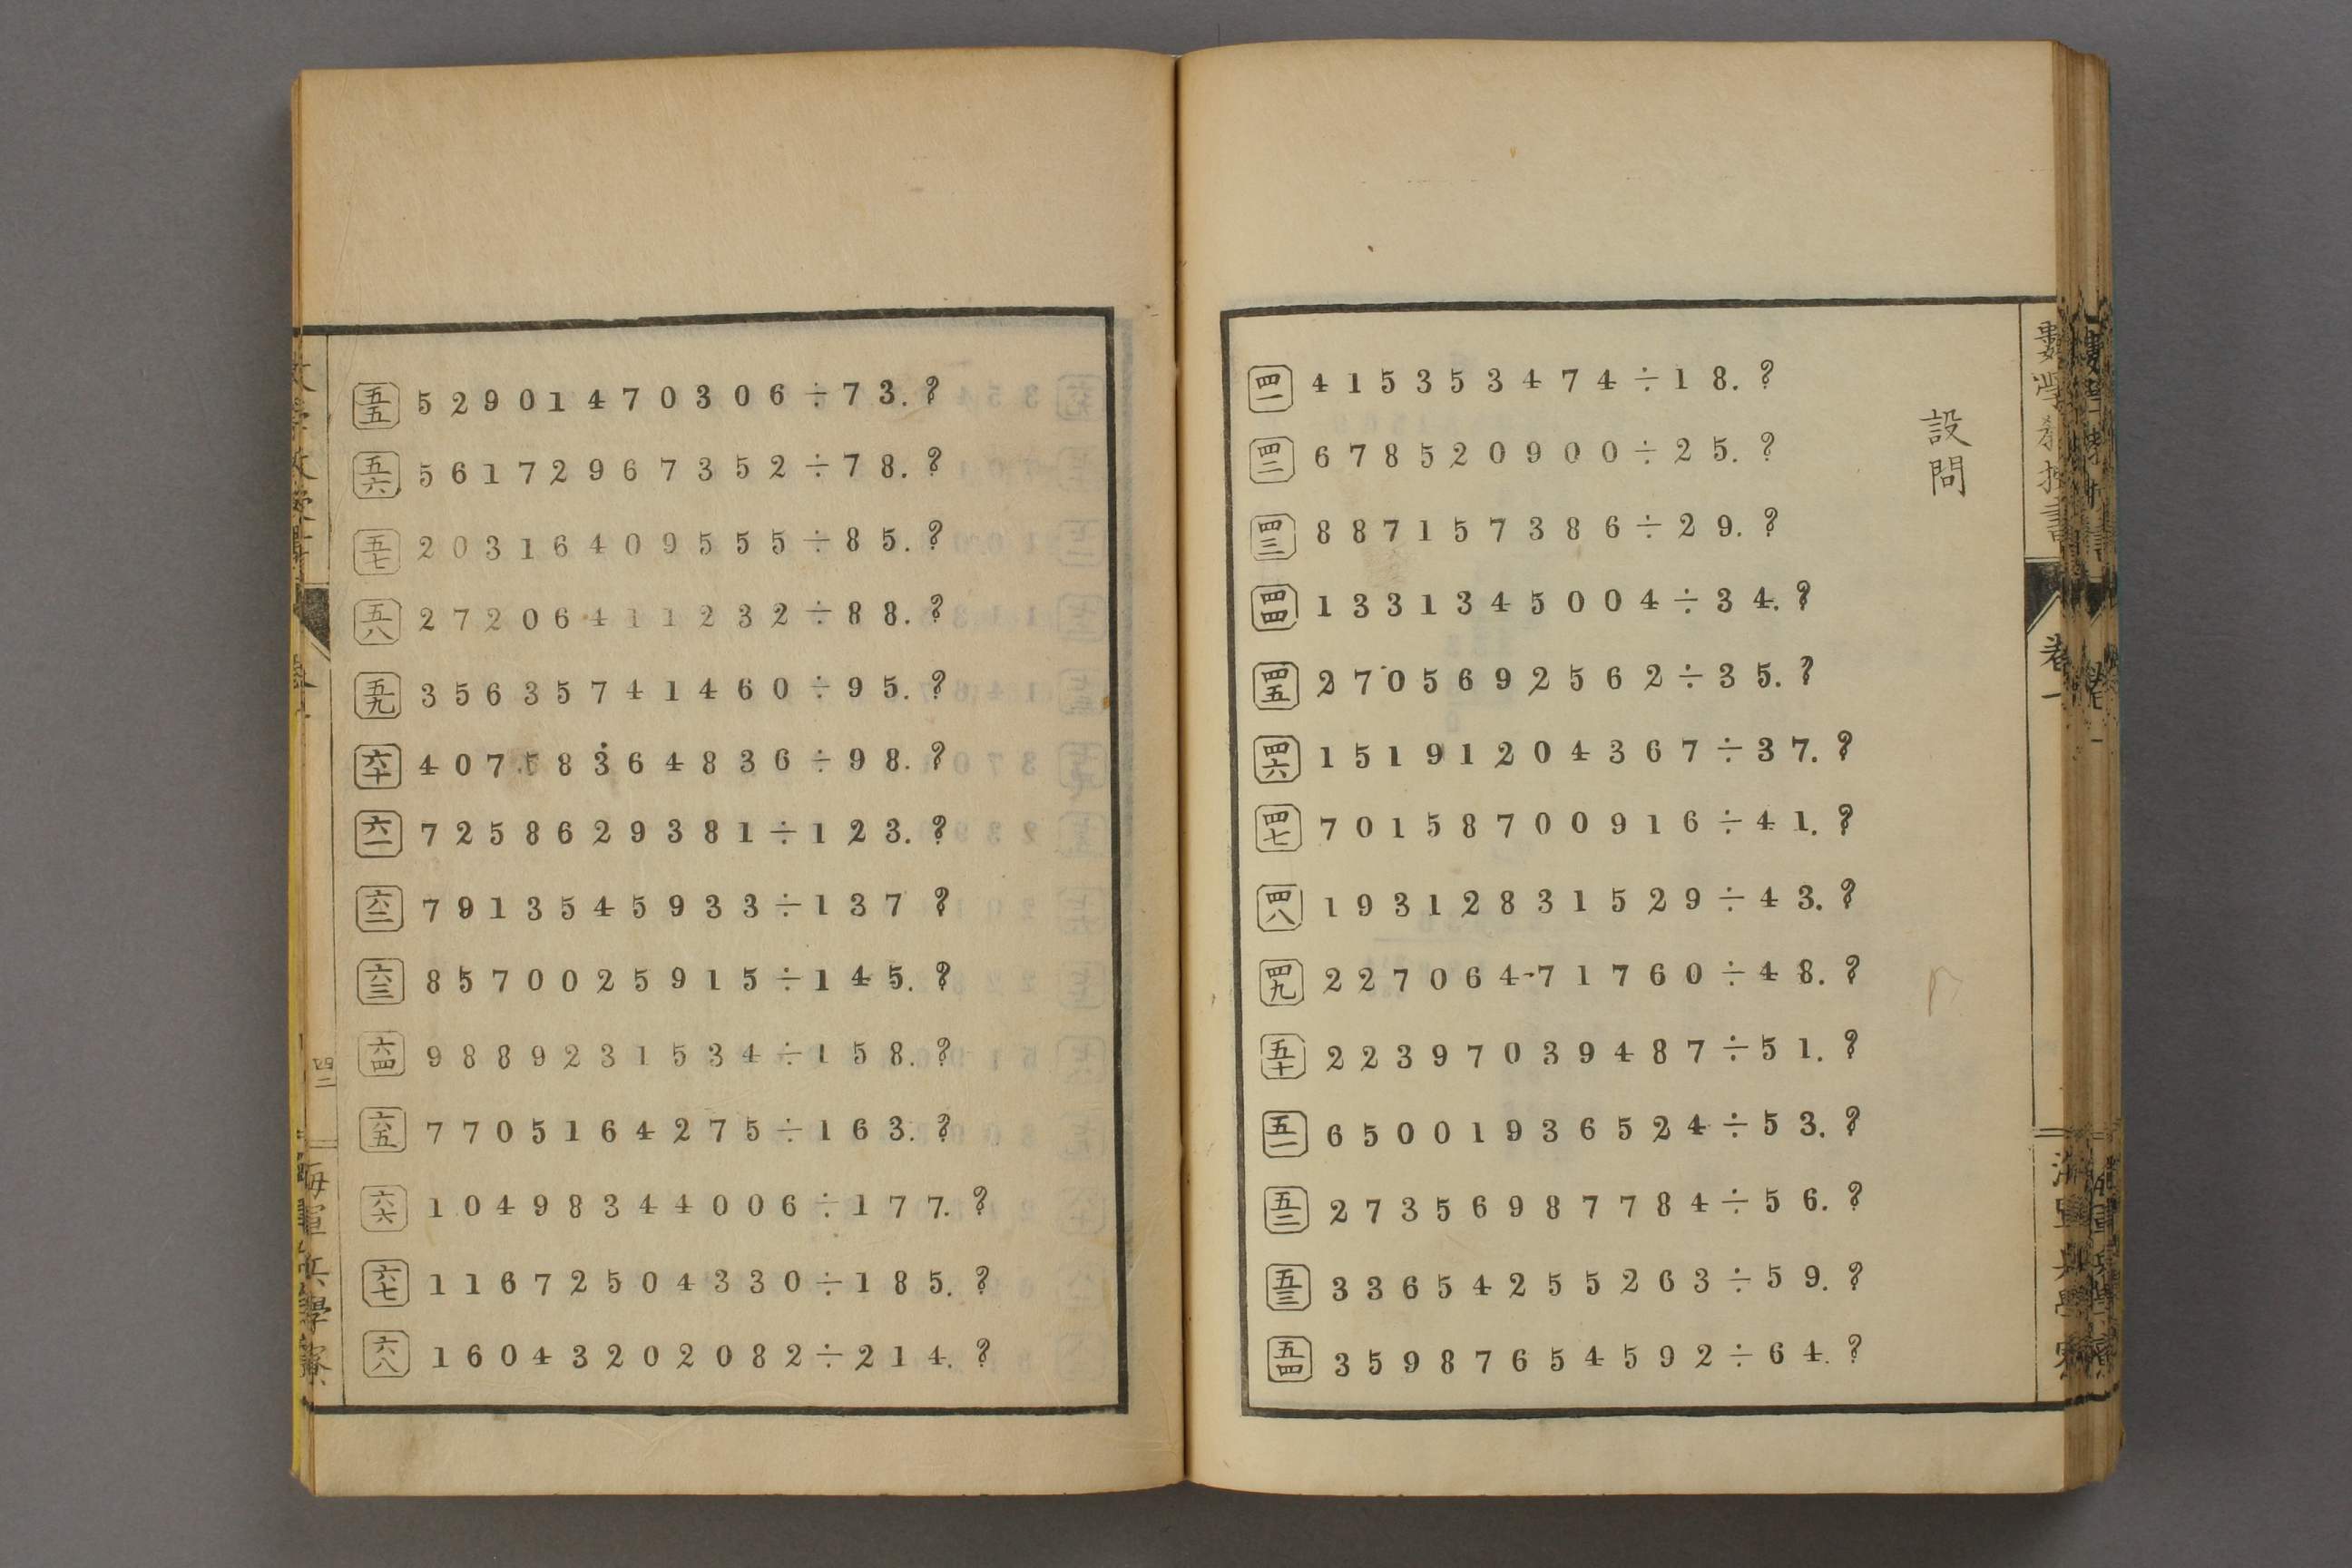 設問
四一 415353474÷18.?
四二 678520900÷25.?
四三 887157386÷29.?
四四 1331345004÷34.?
四五 2705692562÷35.?
四六 15191204367÷37.?
四七 70158700916÷41.?
四八 19312831529÷43.?
四九 22706471760÷48.?
五十 22397039487÷51.?
五一 65001936524÷53.?
五二 27356987784÷56.?
五三 33654255263÷59.?
五四 35987654592÷64.?
卷一
五五 52901470306÷73.?
五六 56172967352÷78.?
五七 20316409555÷85.?
五八 27206411232÷88.?
五九 35635741460÷95.?
六十 40758364836÷98.?
六一 7258629381÷123.?
六二 7913545933÷137?
六三 8570025915÷145.?
六四 9889231534÷158.?
六五 7705164275÷163.?
六六 10498344006÷177.?
六七 11672504330÷185.?
六八 16043202082÷214.?
四二